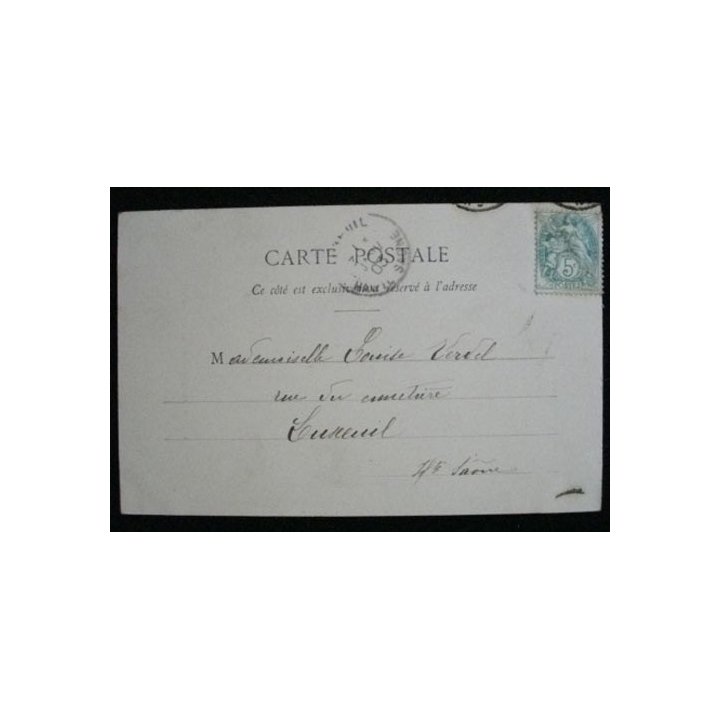 CARTE POSTALE
Ce côté est exclusivement réservé à l'adresse
Mademoiselle Louise Verdel
rue du cimetière
Luxeuil
Hte Saône
5